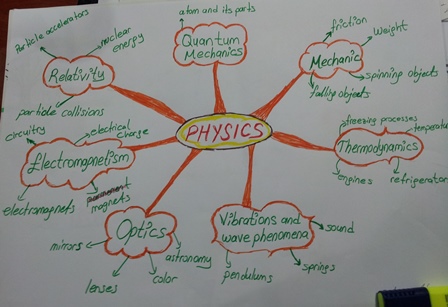 atom and its parts
Quantum
Mechanics
Particle accelerators
nuclear
energy
Relativity
particle collisions
friction
Weight
Mechanic
spinning objects
falling objects
circuitry
electrical
charge
Electromagnetism
electromagnets
permanent
magnets
PHYSICS
freezing processes
temperatu
Thermodynamics
engines
refrigerator
Optics
mirrors
lenses
color
astronomy
Vibrations and
wave phenomena
sound
springs
pendulums